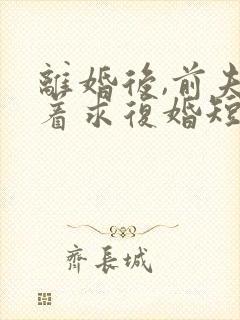 離婚後,前夫
着求復婚短
齊長城